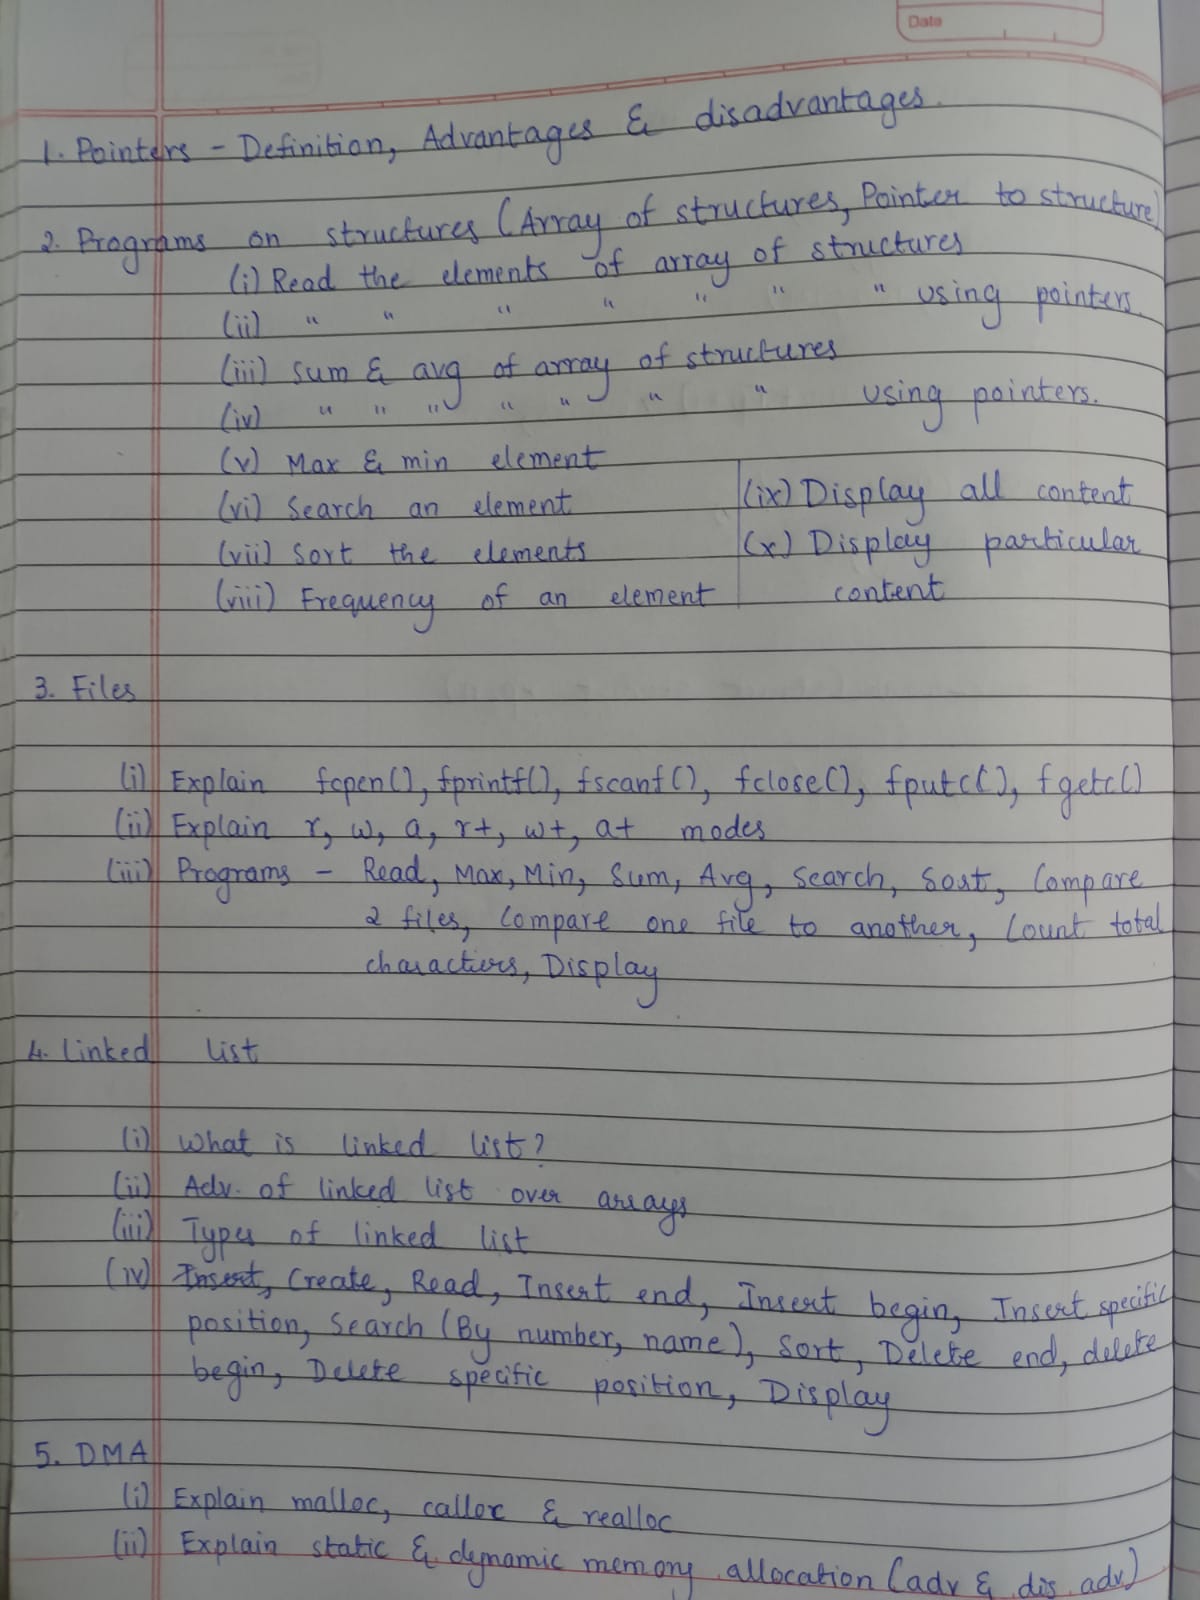 Date
1. Pointers - Definition, Advantages & disadvantages.
2. Programs on structures (Array of structures, Pointer to structure)
(i) Read the elements of array of structures
(ii) " " " " " " " using pointers.
(iii) Sum & avg of array of structures
(iv) " " " " " " " using pointers.
(v) Max & min element
(vi) Search an element
(vii) Sort the elements
(viii) Frequency of an element
(ix) Display all content
(x) Display particular
content
3. Files
(i) Explain fopen(), fprintf(), fscanf(), fclose(), fputc(), fgetc()
(ii) Explain r, w, a, r+, w+, a+ modes
(iii) Programs - Read, Max, Min, Sum, Avg, Search, Sort, Compare
2 files, Compare one file to another, Count total
characters, Display
4. Linked list
(i) What is linked list?
(ii) Adv. of linked list over arrays
(iii) Types of linked list
(iv) Insert, Create, Read, Insert end, Insert begin, Insert specific
position, Search (By number, name), Sort, Delete end, delete
begin, Delete specific position, Display
5. DMA
(i) Explain malloc, calloc & realloc
(ii) Explain static & dynamic memory allocation (adv & dis adv)